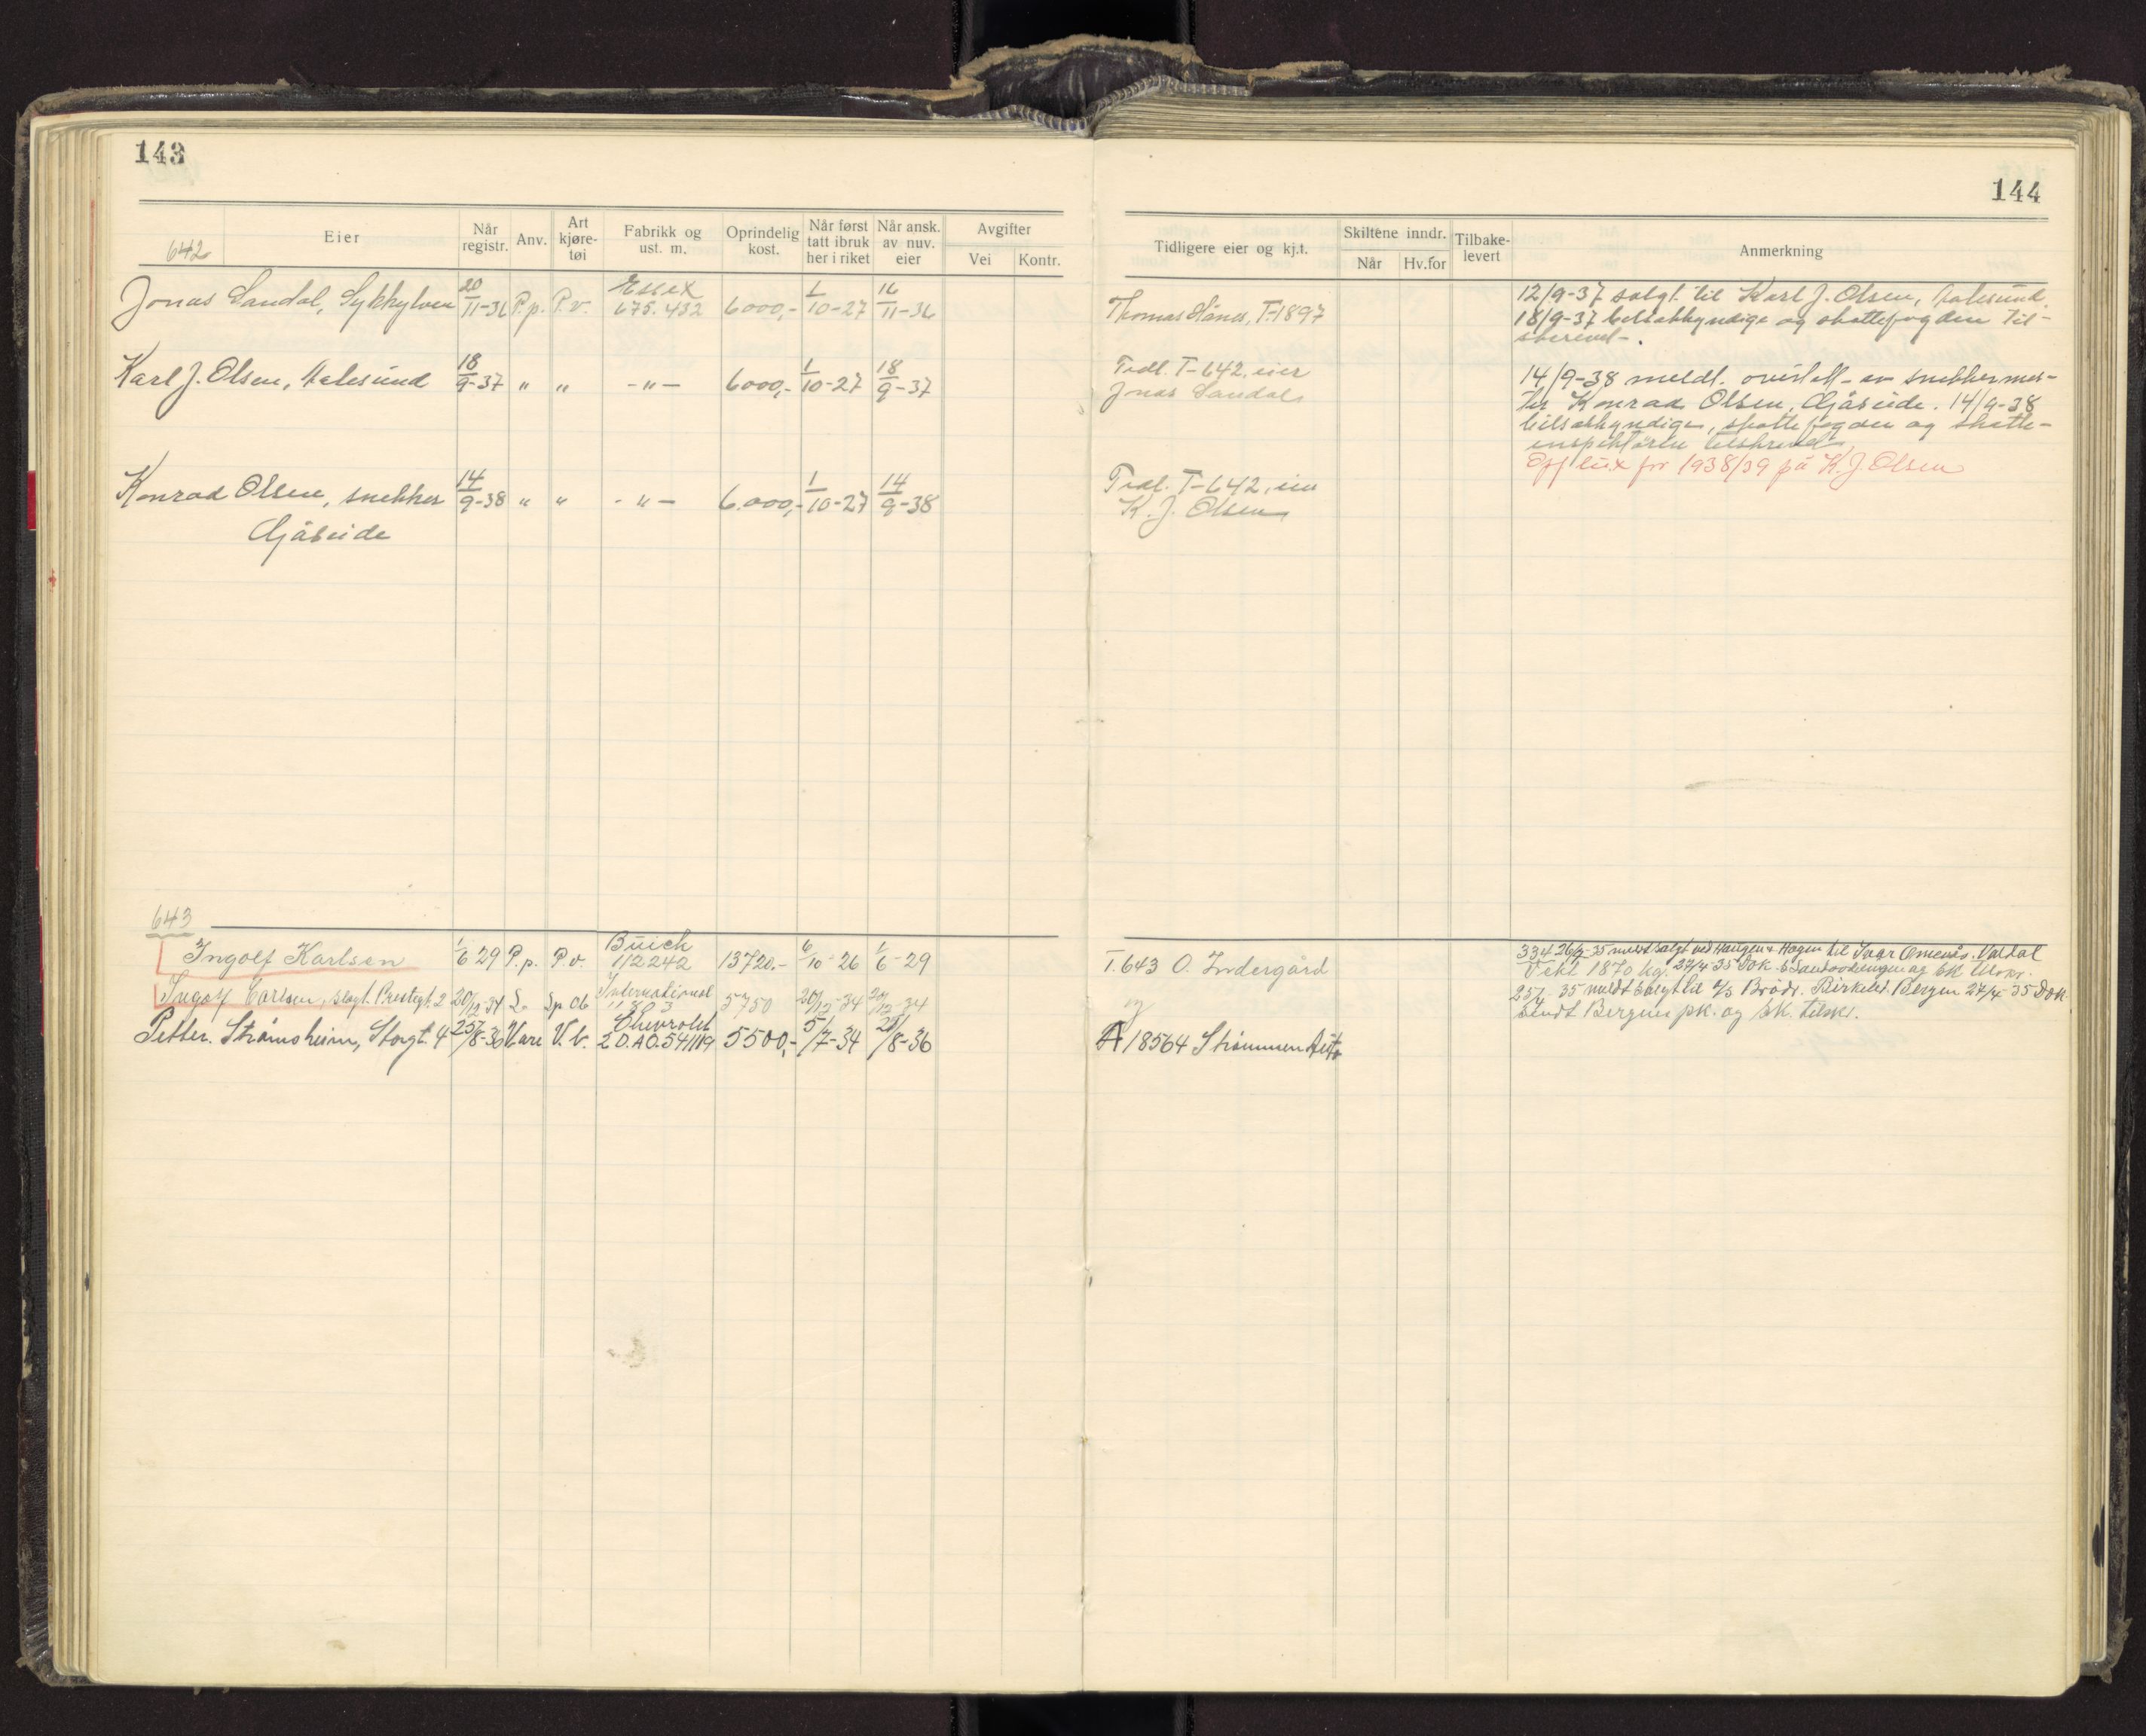 143
144
Eier
Når registr.
Anv.
Art kjøre-tøi
Fabrikk og ust. m.
Oprindelig kost.
Når først tatt i bruk her i riket
Når ansk. av nuv. eier
Avgifter
Vei
Kontr.
Tidligere eier og kj.t.
Skiltene inndr.
Når
Hv.for
Tilbake-levert
Anmerkning
642
Jonas Sandal, Sykkylven 20/11-36 P.p. P.v. Essex 675.432 6000,- 1/10-27 16/11-36 Thomas T-1897
12/9-37 solgt til Karl J. Olsen, Aalesund.
18/9-37 bilsakkyndige og skattefogden til-
skrevet.
Karl J. Olsen, Aalesund 18/9-37 " " -"- 6000,- 1/10-27 18/9-37 Tidl. T-642, eier
Jonas Sandal
14/9-38 meldt overlatt av snekkermes-
ter Konrad Olsen, Gåseide. 14/9-38
bilsakkyndige, skattefogden og skatte-
inspektøren tilskrevet
Opf lux for 1938/39 på K. J. Olsen
Konrad Olsen, snekker 14/9-38 " " -"- 6.000,- 1/10-27 14/9-38 Tidl. T-642, eier
Gåseide K. J. Olsen
643
Ingolf Karlsen 1/6 29 P.p. P.v. Buick 112242 13720.- 6/10-26 1/6-29 T.643 O. Indergård
334 26/3-35 meldt solgt ved Haugen & Hagen til Ivar Omenås. Valdal
Vekt 1870 kg. 27/4 35 Dok. og sk. tilskr.
Ingolf Carlsen, slagt. Prestegt. 2 20/12-34 L. International 11803 5750 20/12-34 20/12-34
25/4-35 meldt solgt til a/s Brødr. Birkeland. Bergen 27/4-35 Dok
sendt Bergens pk. og sk. tilskr.
Petter Strømsheim, Storgt. 4 25/8-36 Vare V.b. Chevrolet 20.AO.541119 5500,- 5/7-34 25/8-36 A 18564 Strømmen Auto